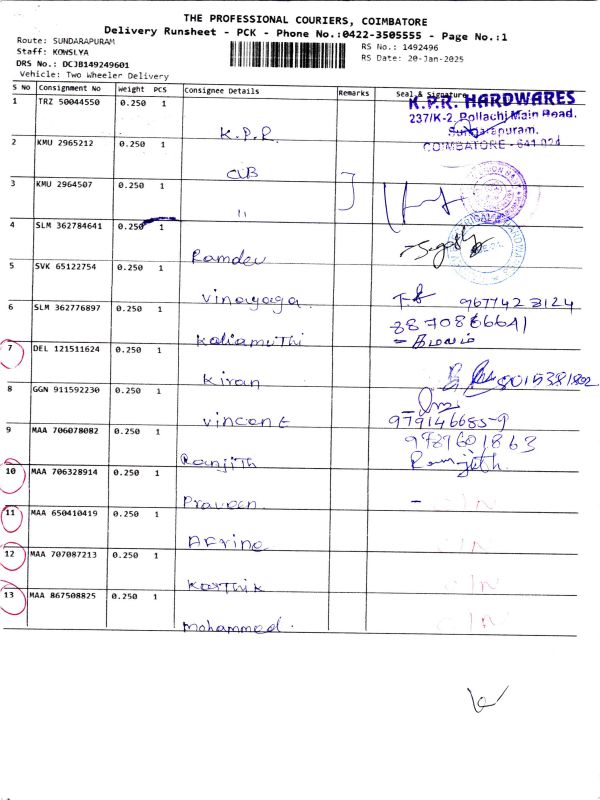 THE PROFESSIONAL COURIERS, COIMBATORE
Delivery Runsheet - PCK - Phone No.:0422-3505555 - Page No.:1
Route: SUNDARAPURAM
Staff: KOWSLYA
DRS No.: DCJB149249601
Vehicle: Two Wheeler Delivery
RS No.: 1492496
RS Date: 20-Jan-2025
S No Consignment No Weight PCS Consignee Details Remarks Seal & Signature
1 TRZ 50044550 0.250 1 K.P.R.
K.P.R. HARDWARES
237/K-2, Pollachi Main Road,
Sundarapuram,
COIMBATORE - 641 024
2 KMU 2965212 0.250 1 CUB
3 KMU 2964507 0.250 1 "
4 SLM 362784641 0.250 1 Ramdev
5 SVK 65122754 0.250 1 Vinayaga 9677423124
6 SLM 362776897 0.250 1 Kaliamuthi 8870886641
7 DEL 121511624 0.250 1 Kiran 8015381802
8 GGN 911592230 0.250 1 Vincent 979146685-9
9 MAA 706078082 0.250 1 Ranjith 9989601863
Ranjith.
10 MAA 706328914 0.250 1 Praveen -
11 MAA 650410419 0.250 1 Afrine
12 MAA 707087213 0.250 1 Karthik
13 MAA 867508825 0.250 1 Mohammed.